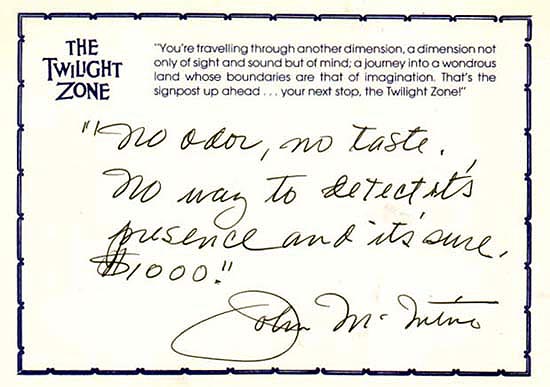 THE
TWILIGHT
ZONE
"You're travelling through another dimension, a dimension not
only of sight and sound but of mind; a journey into a wondrous
land whose boundaries are that of imagination. That's the
signpost up ahead . . . your next stop, the Twilight Zone!"
"No odor, no taste.
No way to detect it's
presence and it's sure.
$1000."
John